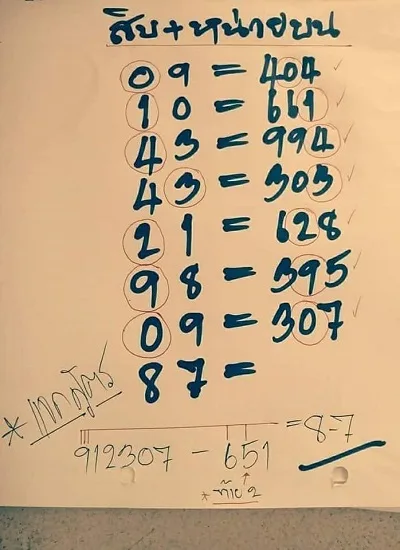 สิบ+หน่วยบน
09 = 404
10 = 661
43 = 994
43 = 303
21 = 628
98 = 395
09 = 307
87 =
* แจกสูตร
912307 - 651 = 8-7
* ท้าย 2